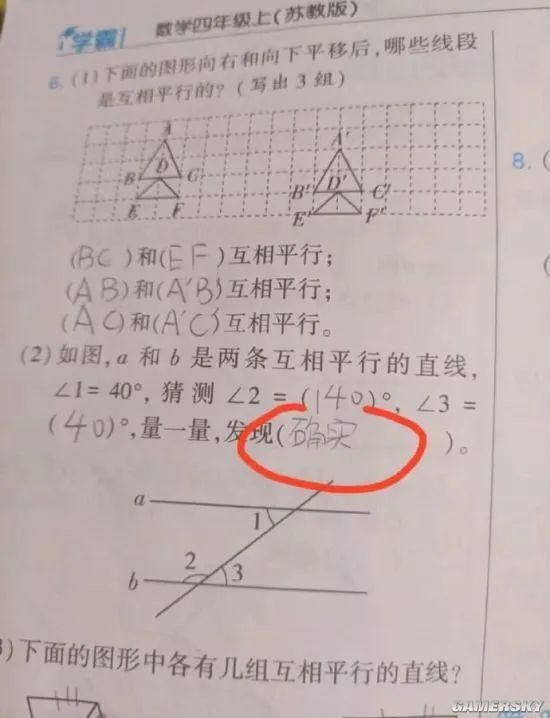 学霸 数学四年级上(苏教版)
6. (1)下面的图形向右和向下平移后,哪些线段
是互相平行的?(写出3组)
A
A'
8.
B D C
B' D' C'
E F
E' F'
(BC)和(EF)互相平行;
(AB)和(A'B')互相平行;
(AC)和(A'C')互相平行。
(2)如图,a和b是两条互相平行的直线,
∠1=40°,猜测∠2=(140)°,∠3=
(40)°,量一量,发现(确实)。
a
1
2
3
b
)下面的图形中各有几组互相平行的直线?
GAMERSKY